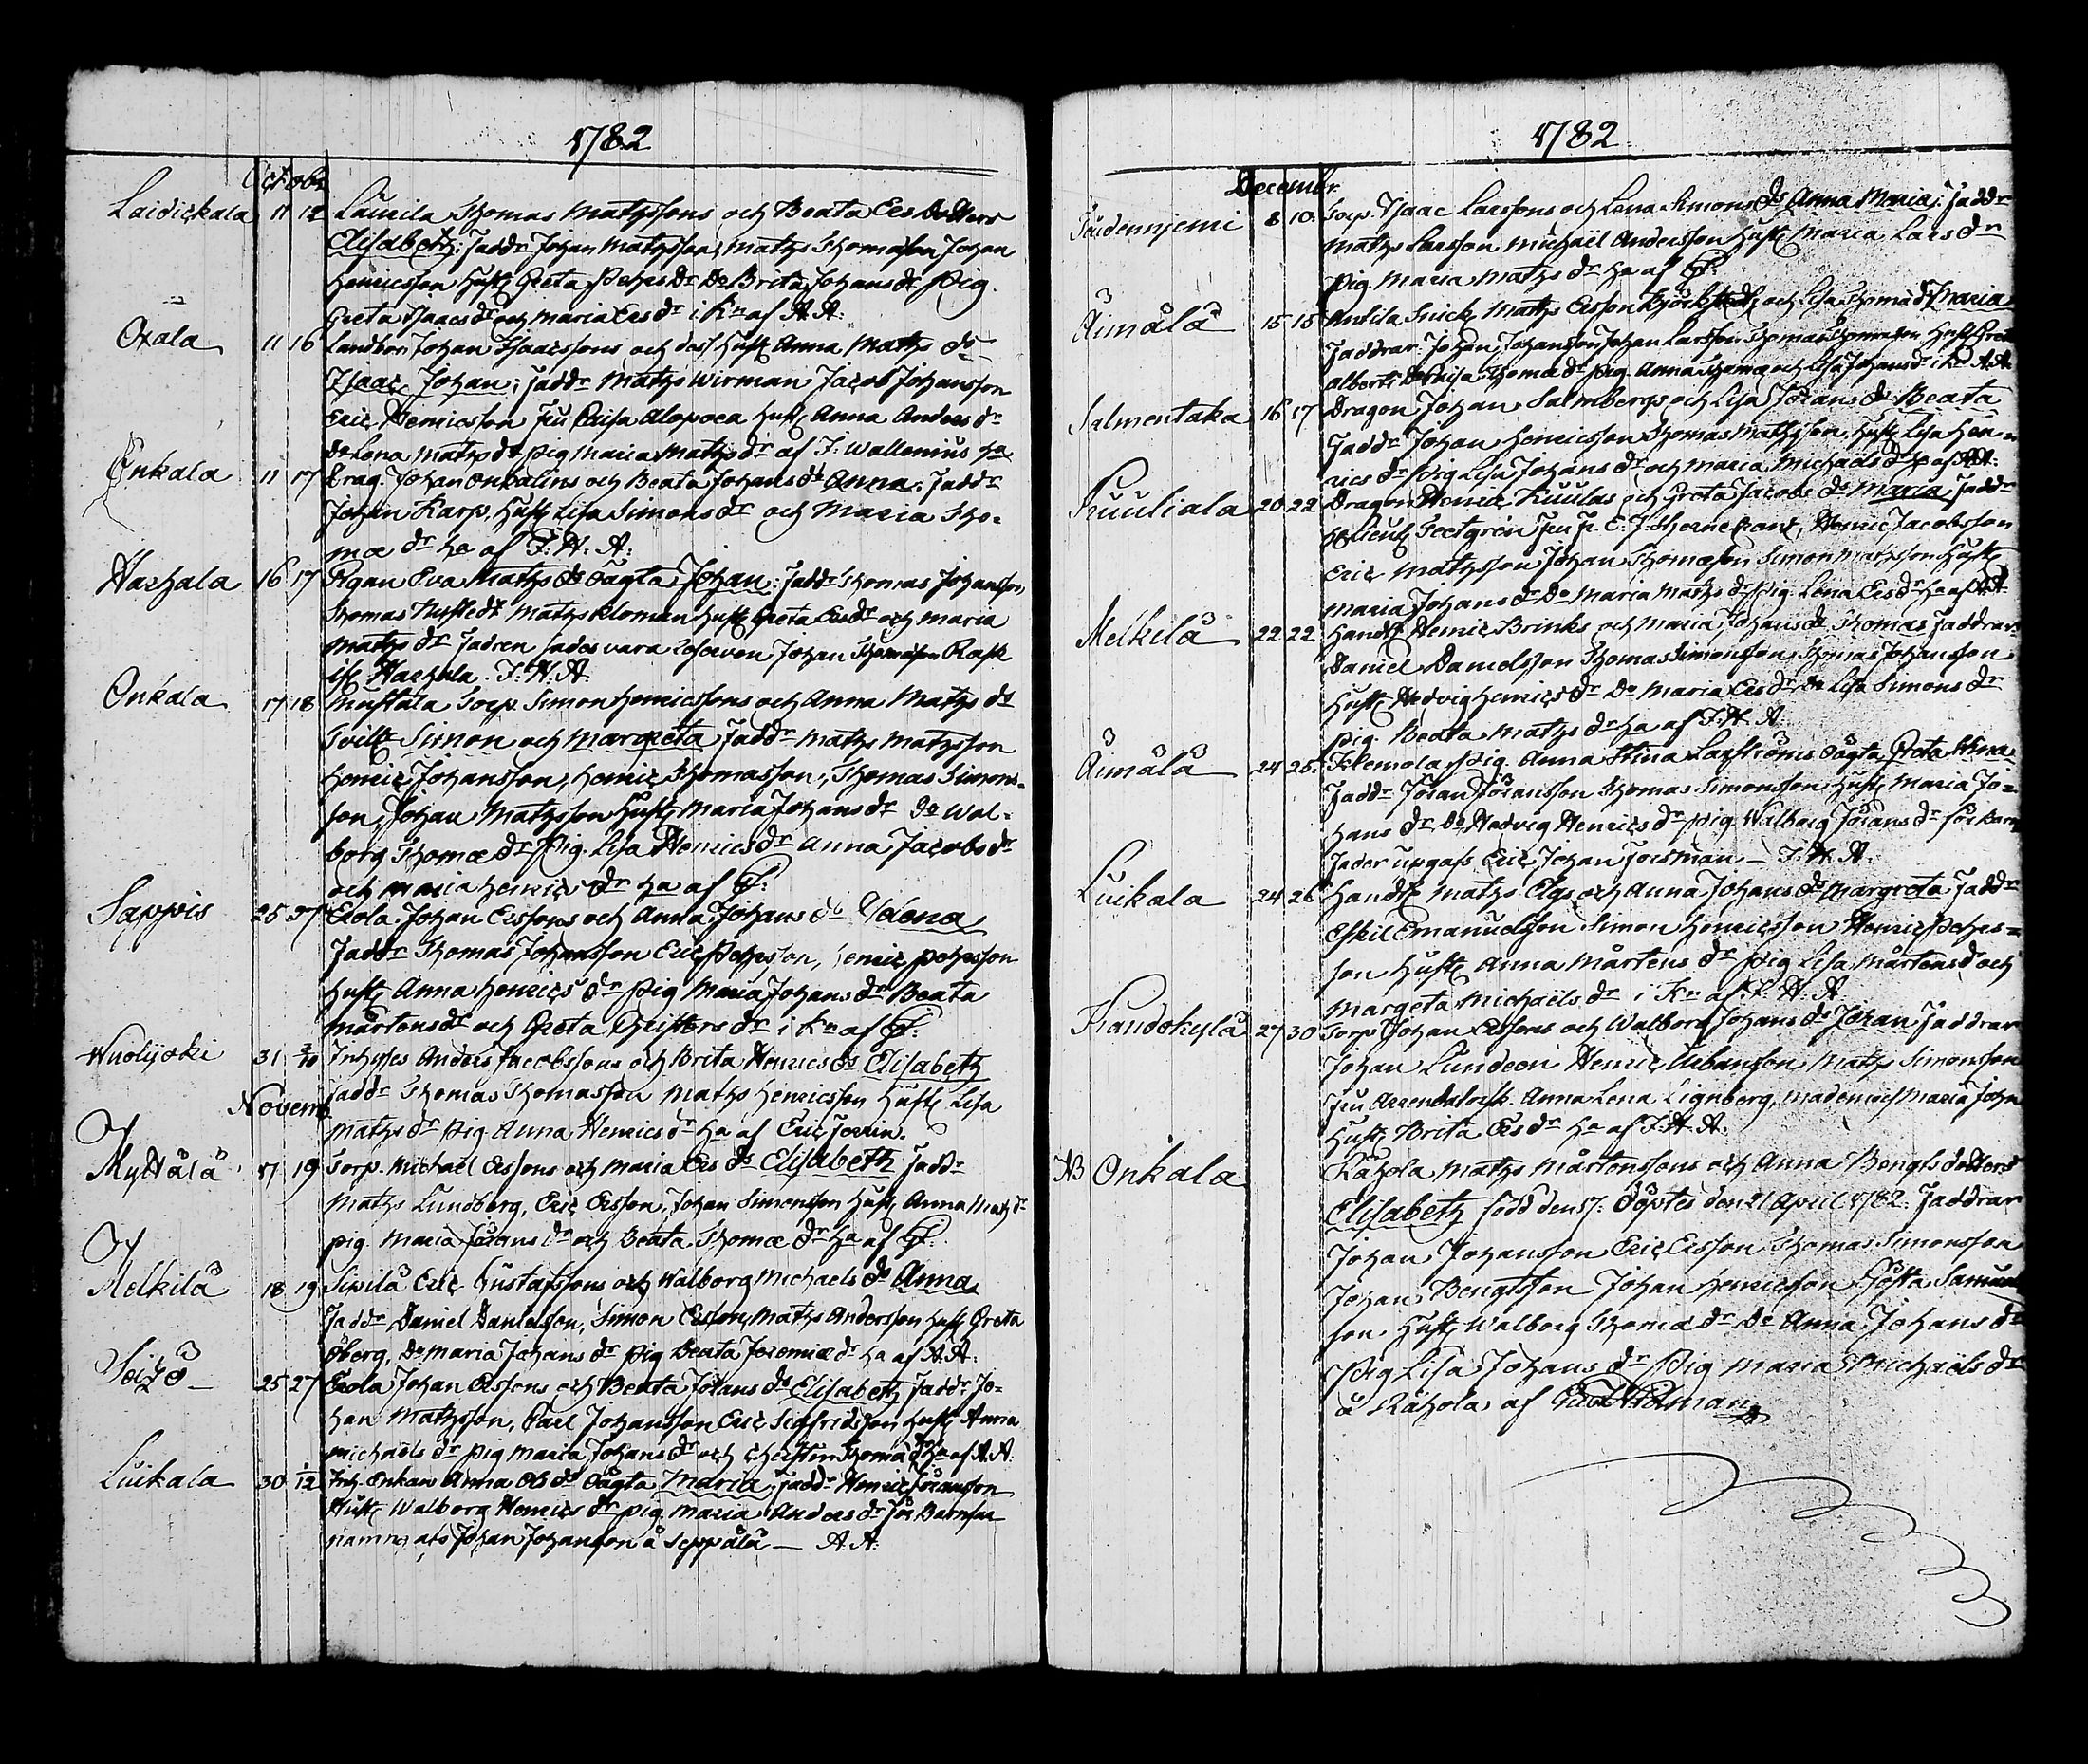 1782
Octobr
Laidickala 11 12 Laurila Thomas Matzssons och Beata Ers Dotters
Elisabeth: Faddr Johan Matzsson, Matz Thomasson Johan
Henricsson Hust. Greta Pehrs Dr Do Brita Johans dr Pig.
Greta Isaacs dr och Maria Ers dr i Kn af A. A.
Oxala 11 16 Landbon Johan Isaacssons och dess Hust Anna Matz dr
Isaac Johan; Faddr Matz Wirman Jacob Johansson
Eric Henricsson Fru Caisa Alopoea Hust. Anna Anders dr
Do Lena Matz dr pig Maria Matz dr af J. Wallenius
Onkala 11 17 Drag. Johan Onkalins och Beata Johans dr Anna. Faddr
Johan Karp, Hust Lisa Simons dr och Maria Tho-
mæ dr ha af F. H. A:
Harhala 16 17 Pigan Eva Matz ds oägta Johan: Faddr Thomas Johansson,
Thomas Matz Kloman Hust Greta Ers dr och Maria
Matz dr Fadren sades vara Johan Thomasson Rask
Harhala. F. H. A.
Onkala 17 18 Mustala Torp. Simon Henricssons och Anna Matz ds
Tvill. Simon och Margreta Faddr Matz Matzsson
Henric Johansson, Henric Thomasson, Thomas Simons-
son, Johan Matzsson Hust. Maria Johans dr Do Wal-
borg Thomæ dr Pig. Lisa Henrics dr Anna Jacobs dr
och Maria Henrics dr ha af
Sappis 25 27 Erola Johan Erssons och Anna Johans ds Helena
Faddr Thomas Johansson Eric Pehrsson, Henric Pehrsson
Hust. Anna Henrics dr Pig Maria Johans dr Beata
Mårtens dr och Greta Christers dr i Kn af
Wuolijoki 31 Inhyses Anders Jacobssons och Brita Henrics ds Elisabeth
Faddr Thomas Thomasson Matz Henricsson Hust Lisa
Novemb.
Matz dr Pig Anna Henrics dr ha af Eric
Myttälä 17 19 Torp. Michael Erssons och Maria Ers ds Elisabeth Fadd-
Matz Lundberg, Eric Ersson, Johan Simonsson Hust. Anna Matz dr
pig Maria Jörans dr och Beata Thomæ dr ha af
Melkilä 18 19 Siwilä Eric Gustafssons och Walborg Michaels ds Anna
Faddr Daniel Danielsson, Simon Ersson, Matz Andersson Hust Greta
Öberg, Do Maria Johans dr pig Beata Jeremiæ dr ha af A. A.
25 27 Erola Johan Erssons och Beata Jörans ds Elisabeth Faddr Jo-
han Matzsson, Carl Johansson Eric Sigfridsson Hust. Anna
Michaels dr pig Maria Johans dr och Christin Thomæ dr ha af A. A.
Luikala 30 1/12 Inh. Enkan Anna Ols ds oägta Maria, Faddr Henric Jöransson
Hust Walborg Henrics dr pig Maria Anders dr för Barnfar
namnes Johan Johansson å Seppälä — A. A.
1782.
Decembr.
8 10 Torp. Isaac Larssons och Lena Simons ds Anna Maria: Faddr
Matz Larsson Michaël Andersson Hust. Maria Lars dr
Pig Maria Matz dr ha af
Äimälä 15 15 Anttila Snick. Matz Ersson Björkstedt och Lisa Thomæ ds Maria
Faddrar. Johan Johansson Johan Larsson Thomas Thomasson Hust. Greta
Alberti Do Caisa Thomæ dr pig Anna Thomæ och Lisa Johans dr i Kn A. A.
Salmentaka 16 17 Dragon Johan Salmbergs och Lisa Jörans ds Beata
Faddr Johan Henricsson Thomas Matzsson, Hust. Lisa Hen-
rics dr Pig Lisa Johans dr och Maria Michaëls dr ha af A. A.
Kuuliala 20 22 Dragon Henric Kuulas och Greta Jacobs ds Maria Faddr
Lieut. Tectgren Henric Jacobsson
Eric Matzsson Johan Thomasson Simon Matzsson Hust.
Maria Johans dr Do Maria Matz dr pig Lena Ers dr ha af A. A.
Melkilä 22 22 Handtl. Henric Brinks och Maria Johans ds Thomas Faddrar
Daniel Danielsson Thomas Simonsson Thomas Johansson
Hust. Hedvig Henrics dr Do Maria Ers dr Do Lisa Simons dr
Pig. Beata Matz dr ha af F. H. A.
Äimälä 24 25. Ikkemola Pig. Anna Stina Lagströms oägta Greta Stina
Faddr Jöran Jöransson Thomas Simonsson Hust. Maria Jo-
hans dr Do Hedvig Henrics dr Pig Walborg Jörans dr för Barn
Fader upgafs Eric Johan Forsman — F. H. A.
Luikala 24 26 Handtl. Matz Elgs och Anna Johans ds Margreta Faddr
Eskil Emanuelsson Simon Henricsson Henric Pehrs-
son Hust Anna Mårtens dr Pig Lisa Mårtens d och
Margeta Michaëls dr i Kn af F. H. A
27 30 Torp Johan Erssons och Walborg Johans ds Johan Faddrar
Johan Lundeen Henric Urbansson Matz Simonsson
Fru Anna Lena Lignberg, Mademois Maria John
Hust. Brita Ers dr ha af F. H. A.
NB Onkala Rahola Matz Mårtenssons och Anna Bengts dotters
Elisabeth född den 17. döptes den 21 April 1782. Faddrar
Johan Johansson Eric Ersson Thomas Simonsson
Johan Bengtsson Johan Henricsson Gösta Samuels
son, Hust. Walborg Thomæ dr Do Anna Johans dr
Pig Lisa Johans dr Pig Maria Michaëls dr
å Rahola af